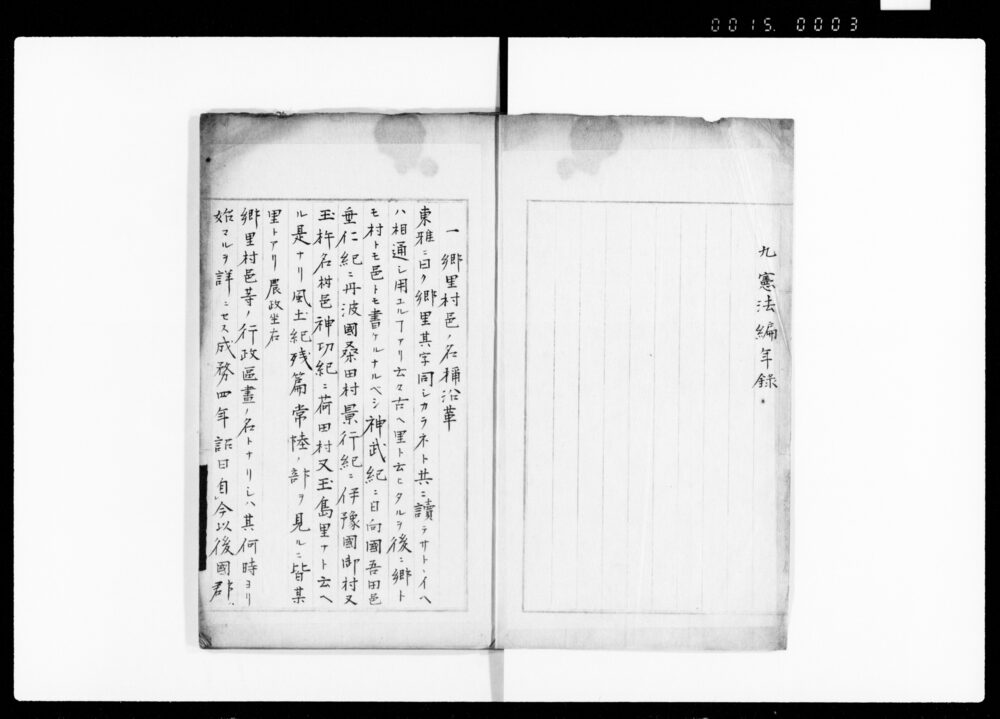 0015. 0003
九 憲法編年録.
一 郷里村邑ノ名稱沿革
東雅ニ曰ク郷里其字同シカラネト共ニ讀テサトヽイヘ
ハ相通シ用ユルヿアリ云々古ヘ里ト云ヒタルヲ後ニ郷ト
モ村トモ邑トモ書ケルナルベシ神武紀ニ日向國吾田邑
垂仁紀ニ丹波國桑田村景行紀ニ伊豫國御村又
玉杵名村邑神功紀ニ荷田村又玉島里ナト云ヘ
ル是ナリ風土紀残篇常陸ノ部ヲ見ルニ皆某
里トアリ農政坐右
郷里村邑等ノ行政區畫ノ名トナリシハ其何時ヨリ
始マルヲ詳ニセス成務四年詔曰「自今以後國郡、